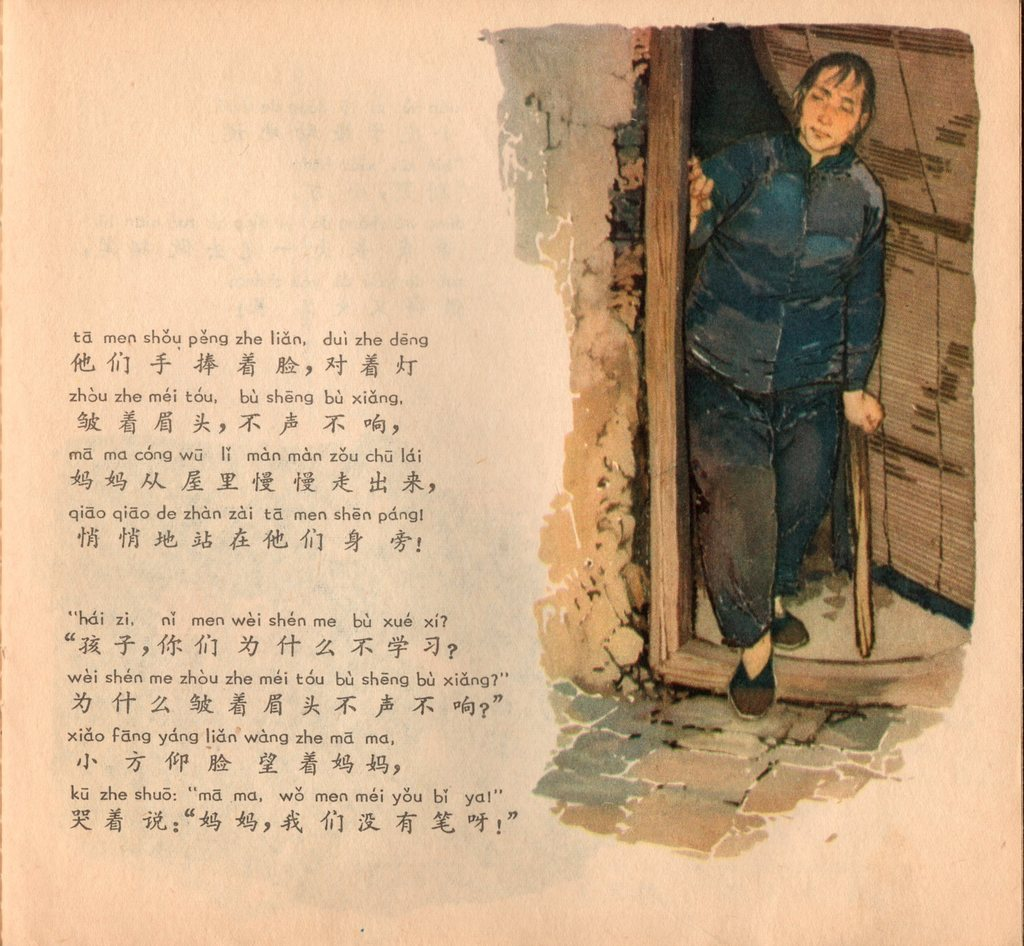 tā men shǒu pěng zhe liǎn, duì zhe dēng
他们手捧着脸,对着灯
zhòu zhe méi tóu, bù shēng bù xiǎng,
皱着眉头,不声不响,
mā ma cóng wū lǐ màn màn zǒu chū lái
妈妈从屋里慢慢走出来,
qiāo qiāo de zhàn zài tā men shēn páng!
悄悄地站在他们身旁!
"hái zi, nǐ men wèi shén me bù xué xí?
“孩子,你们为什么不学习?
wèi shén me zhòu zhe méi tóu bù shēng bù xiǎng?"
为什么皱着眉头不声不响?”
xiǎo fāng yáng liǎn wàng zhe mā ma,
小方仰脸望着妈妈,
kū zhe shuō: "mā ma, wǒ men méi yǒu bǐ ya!"
哭着说:“妈妈,我们没有笔呀!”